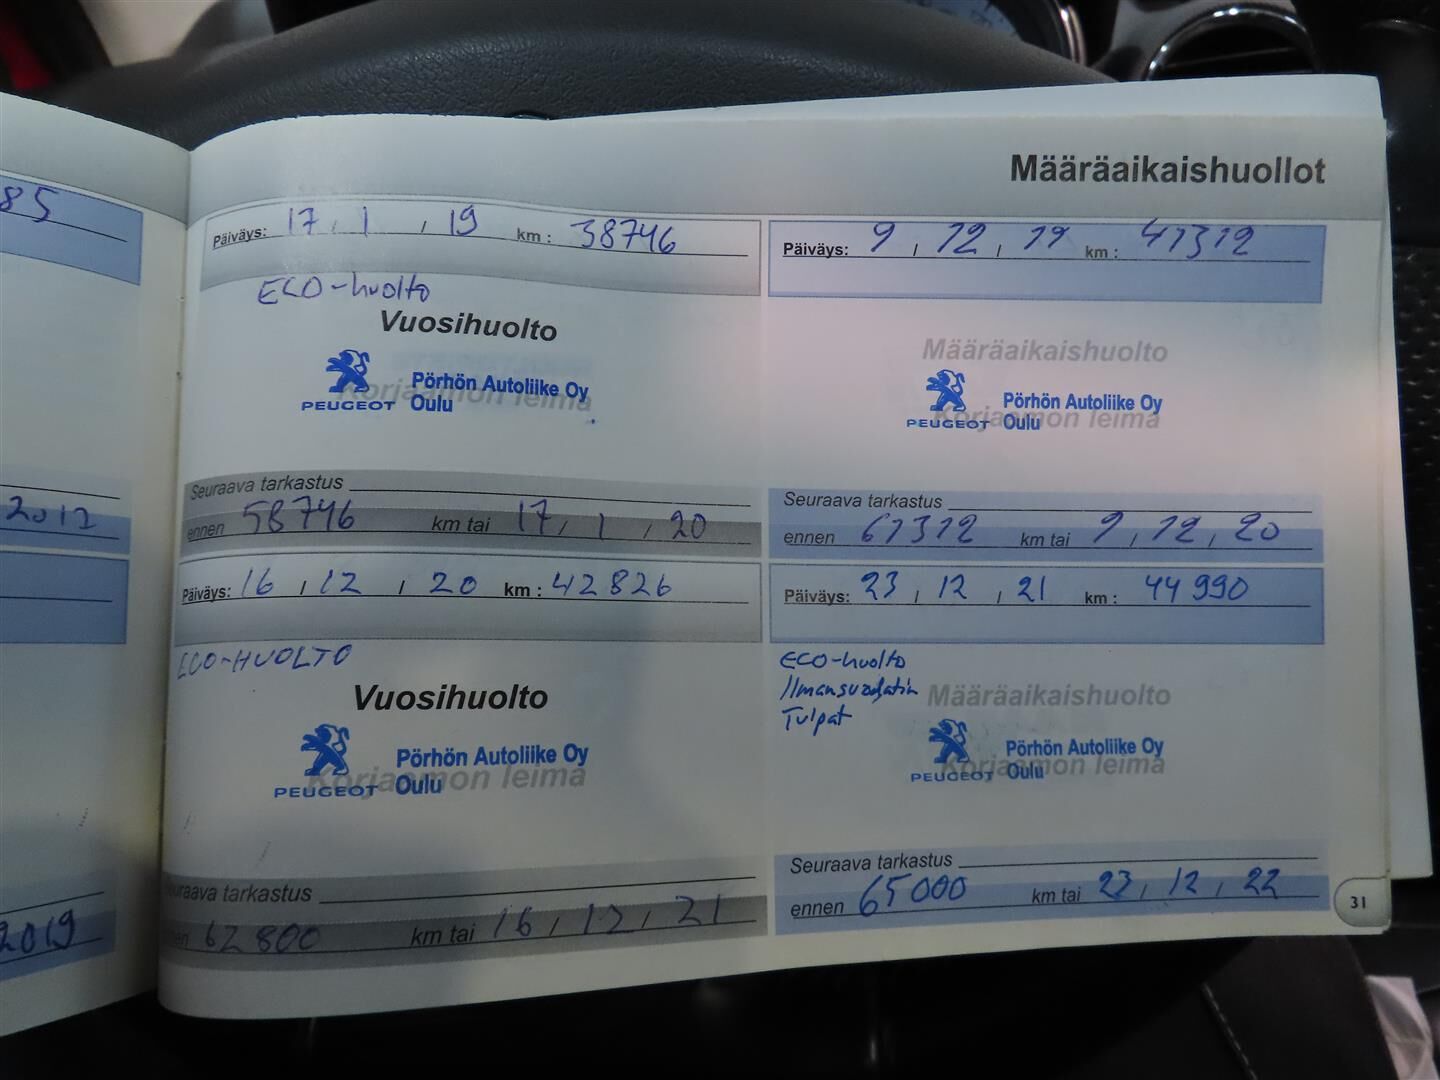 85
2017
2019
Määräaikaishuollot
Päiväys: 17 / 1 / 19 km: 38746
ECO-huolto
Vuosihuolto
Korjaamon leima
PEUGEOT
Pörhön Autoliike Oy
Oulu
Seuraava tarkastus
ennen 58746 km tai 17 / 1 / 20
Päiväys: 9 / 12 / 19 km: 41312
Määräaikaishuolto
Korjaamon leima
PEUGEOT
Pörhön Autoliike Oy
Oulu
Seuraava tarkastus
ennen 61312 km tai 9 / 12 / 20
Päiväys: 16 / 12 / 20 km: 42826
ECO-HUOLTO
Vuosihuolto
Korjaamon leima
PEUGEOT
Pörhön Autoliike Oy
Oulu
Seuraava tarkastus
ennen 62800 km tai 16 / 12 / 21
Päiväys: 23 / 12 / 21 km: 44990
ECO-huolto
Ilmansuodatin
Tulpat
Määräaikaishuolto
Korjaamon leima
PEUGEOT
Pörhön Autoliike Oy
Oulu
Seuraava tarkastus
ennen 65000 km tai 23 / 12 / 22
31